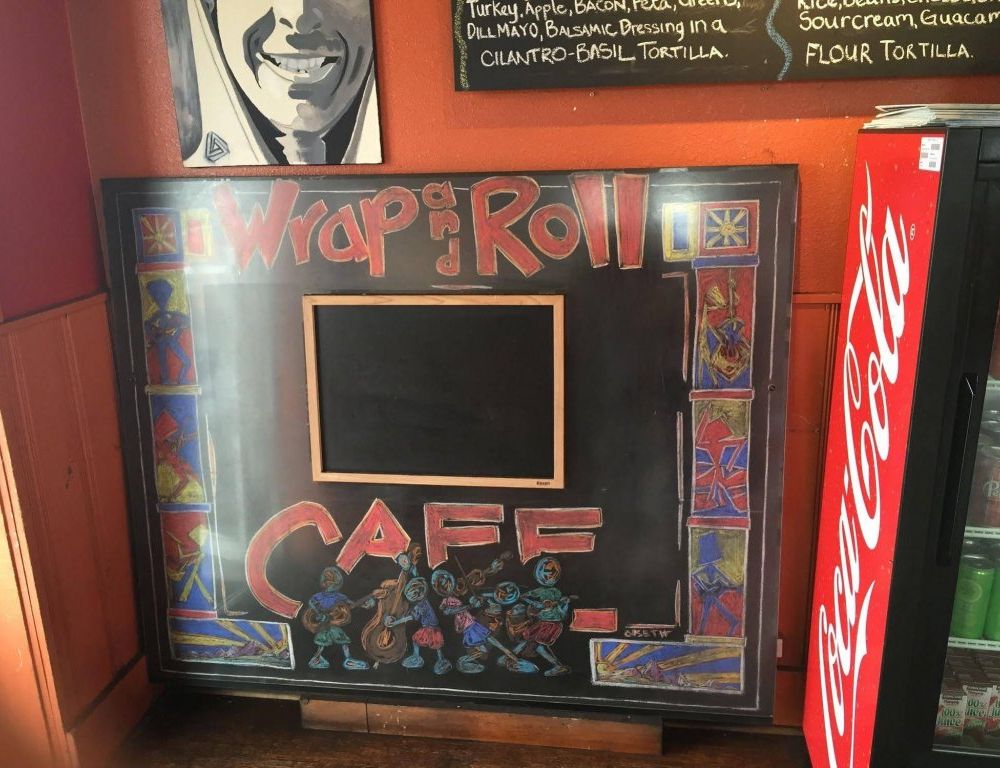 Turkey, Apple, BACON, Feta, Greens,
DILL MAYO, BALSAMIC Dressing in a
CILANTRO-BASIL TORTILLA.
Sourcream, Guacam
FLOUR TORTILLA.
Wrap and Roll
CAFE
Coca-Cola